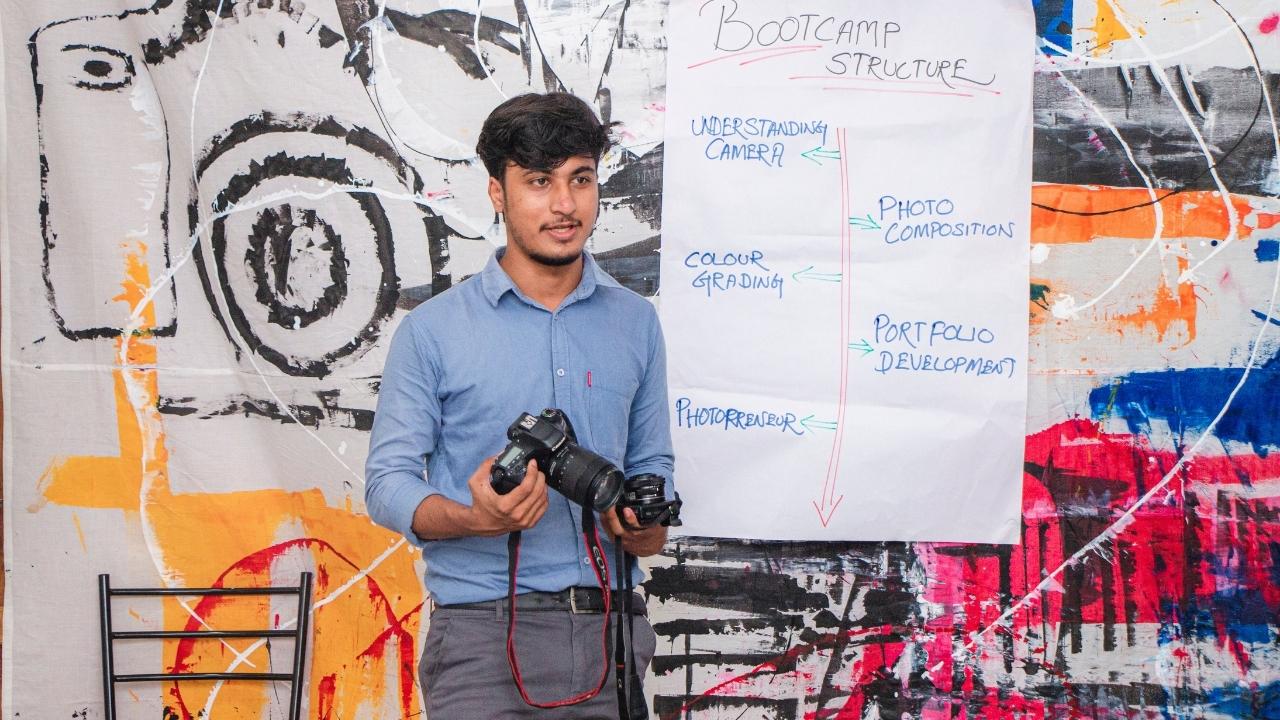 BOOTCAMP
STRUCTURE
UNDERSTANDING
CAMERA
PHOTO
COMPOSITION
COLOUR
GRADING
PORTFOLIO
DEVELOPMENT
PHOTORRENEUR